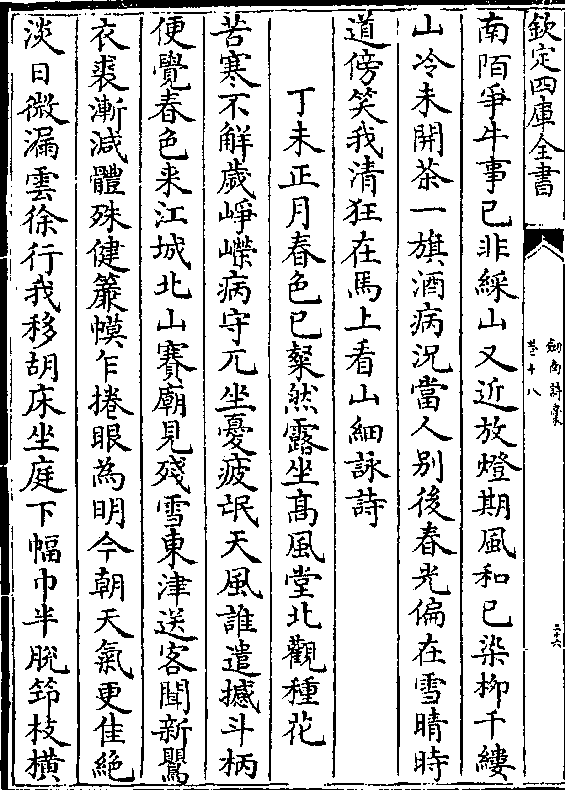 欽定四庫全書
劍南詩稾
卷十八
二十六
南陌爭牛事已非綵山又近放燈期風和已染柳千縷
山冷未開茶一旗酒病況當人别後春光偏在雪晴時
道傍笑我清狂在馬上看山細詠詩
丁未正月春色已粲然露坐髙風堂北觀種花
苦寒不解歲崢嶸病守兀坐憂疲氓天風誰遣撼斗柄
便覺春色来江城北山賽廟見殘雪東津送客聞新鸎
衣裘漸減體殊健簾幙乍捲眼為明今朝天氣更佳絶
淡日微漏雲徐行我移胡床坐庭下幅巾半脫笻枝横